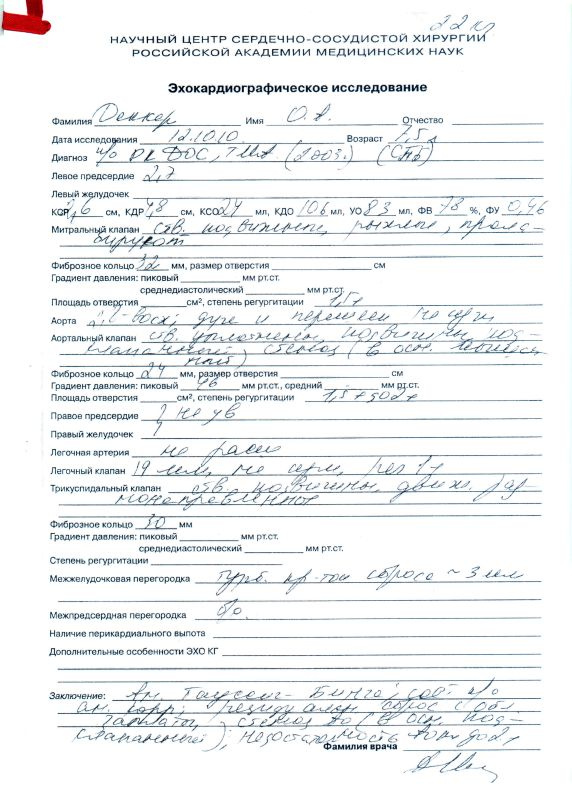 22 кг
НАУЧНЫЙ ЦЕНТР СЕРДЕЧНО-СОСУДИСТОЙ ХИРУРГИИ
РОССИЙСКОЙ АКАДЕМИИ МЕДИЦИНСКИХ НАУК
Эхокардиографическое исследование
Фамилия Деккер Имя О.А. Отчество
Дата исследования 12.10.10. Возраст 7,5 л
Диагноз п/о ДОС, (2003г.) (СПб)
Левое предсердие 2,7
Левый желудочек
КСР 2,6 см, КДР 4,8 см, КСО 24 мл, КДО 106 мл, УО 83 мл, ФВ 78 %, ФУ 0,46
Митральный клапан ств. подвижны, рыхлые, прола-
бируют
Фиброзное кольцо 32 мм, размер отверстия см
Градиент давления: пиковый мм рт.ст.
среднедиастолический мм рт.ст.
Площадь отверстия см², степень регургитации 1,5+
Аорта 2,2 восх; дуга и перешеек не суж
Аортальный клапан ств. уплотнены, подвижны, под-
клапанный стеноз (в осн.
Фиброзное кольцо 24 мм, размер отверстия см
Градиент давления: пиковый 46 мм рт.ст., средний мм рт.ст.
Площадь отверстия см², степень регургитации 1,5+ до 2+
Правое предсердие не ув
Правый желудочек
Легочная артерия не расш
Легочный клапан 19 мм, не изм, рег 1+
Трикуспидальный клапан ств. подвижны, движ. раз-
нонаправленные
Фиброзное кольцо 30 мм
Градиент давления: пиковый мм рт.ст.
среднедиастолический мм рт.ст.
Степень регургитации
Межжелудочковая перегородка турб. пр-ток сброса ~ 3 мм
Межпредсердная перегородка б/о.
Наличие перикардиального выпота
Дополнительные особенности ЭХО КГ
Заключение: Ан. Тауссиг-Бинга, сост. п/о
ан. корр; резидуален сброс с обл.
заплаты, стеноз Ао (в осн. под-
клапанный), недостаточность до 2+
Фамилия врача